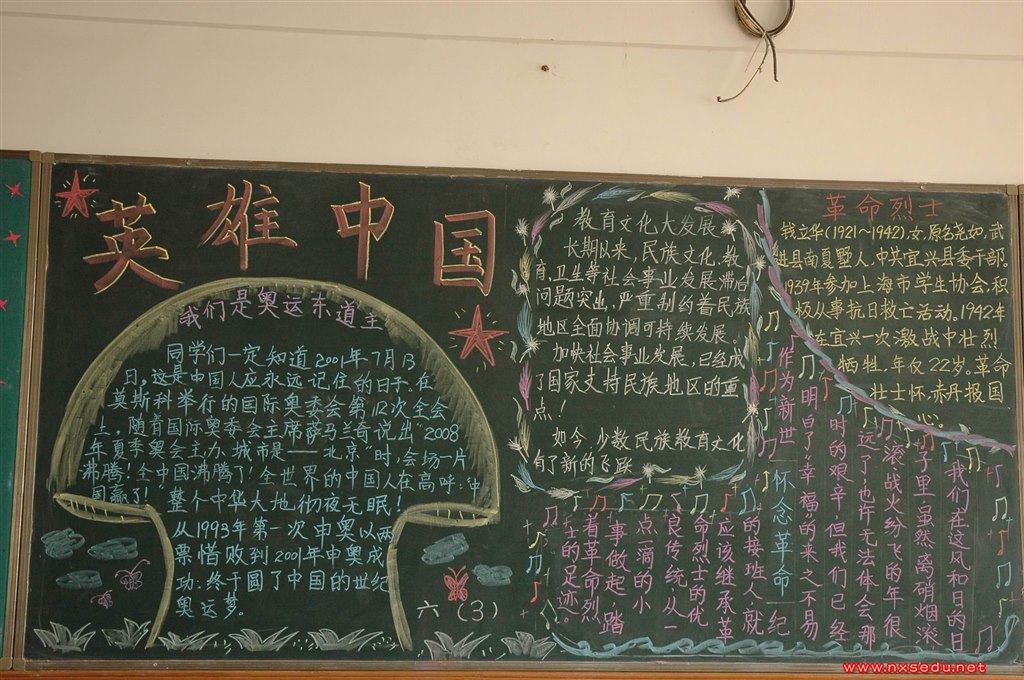 英雄中国
我们是奥运东道主
同学们一定知道2001年7月13
日，这是中国人应永远记住的日子。在
莫斯科举行的国际奥委会第112次全会
上，随着国际奥委会主席萨马兰奇说出“2008
年夏季奥会主办城市是——北京”时，会场一片
沸腾！全中国沸腾了！全世界的中国人在高呼：“中
国赢了！整个中华大地，彻夜无眠！
从1993年第一次申奥以两
票惜败到2001年申奥成
功：终于圆了中国的世纪
奥运梦。
六（3）
教育文化大发展
长期以来，民族文化、教
育、卫生等社会事业发展滞后
问题突出，严重制约着民族
地区全面协调可持续发展。
加快社会事业发展，已经成
了国家支持民族地区的重
点！
如今，少数民族教育文化
有了新的飞跃
革命烈士
钱立华（1921～1942），女，原名尧如，武
进县南夏墅人，中共宜兴县委干部。
1939年参加上海市学生协会，积
极从事抗日救亡活动。1942年
在宜兴一次激战中壮烈
牺牲，年仅22岁。革命
壮士怀，赤丹报国
心。
怀念革命
我们在这风和日的日
子里虽然离硝烟滚
滚战火纷飞的年很
远了！也许无法体会那
时的艰辛但我们已经
明白了幸福的来之不易
作为新世纪
的接班人就
应该继承革
命烈士的优
良传统，从一
点一滴的小
事做起踏
着革命烈
士的足迹。
www.nxsedu.net